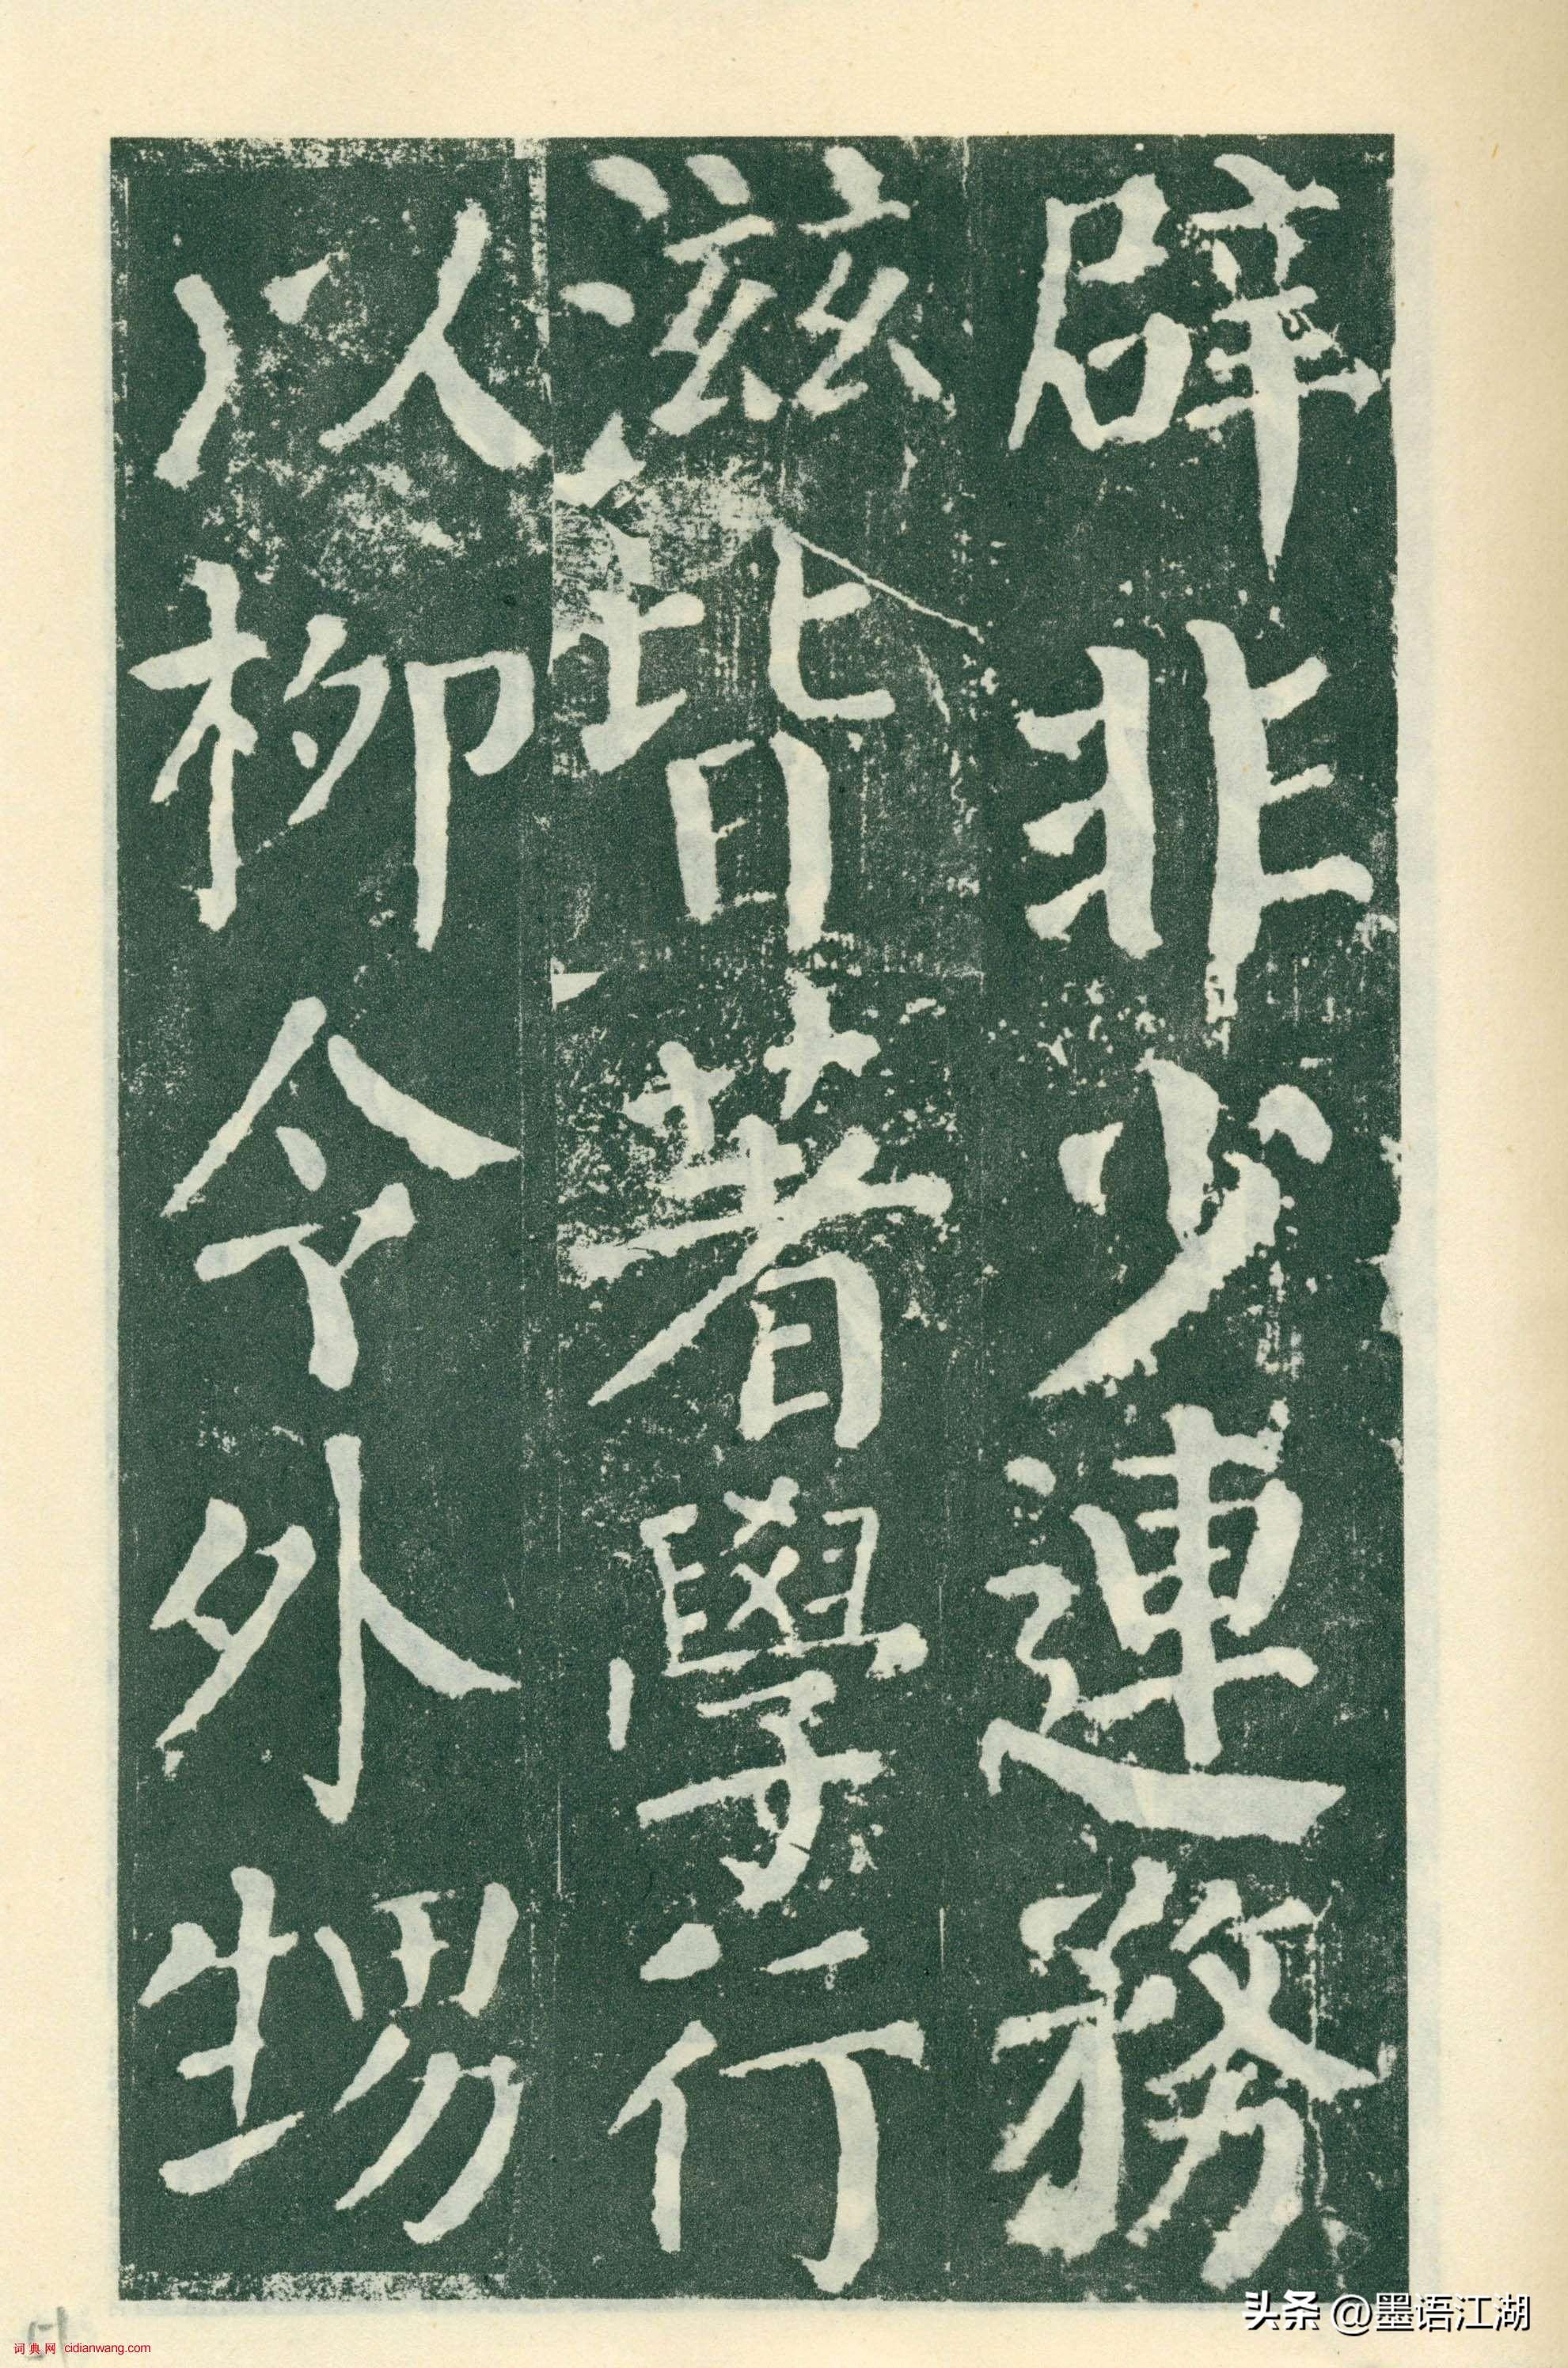 辟非少連務
滋皆著學行
以柳令外甥
头条 @墨语江湖
词典网 cidianwang.com